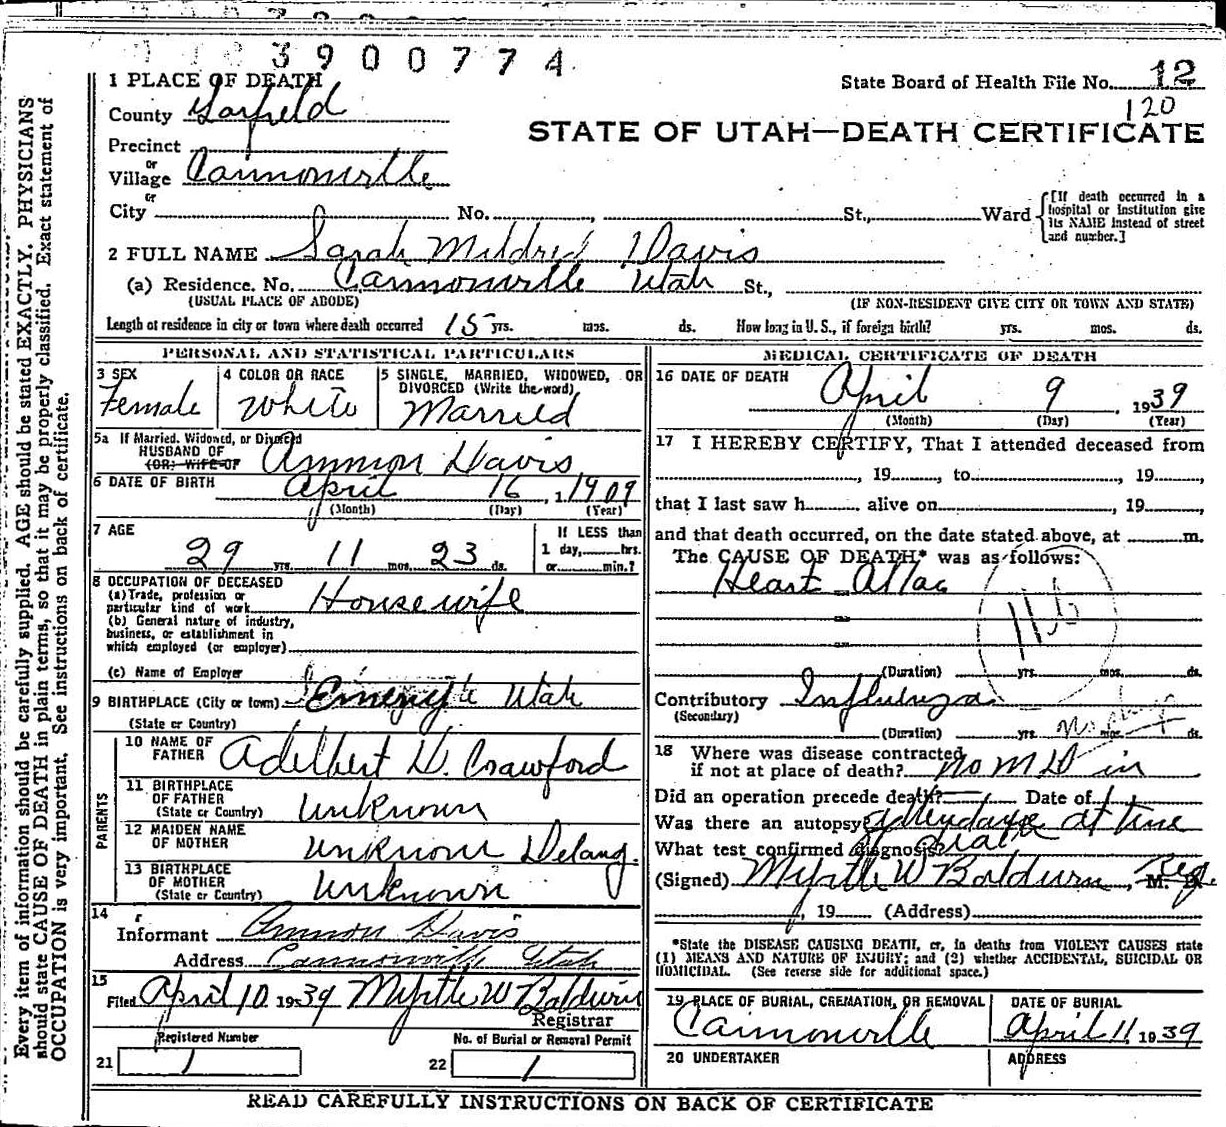 3900774
1 PLACE OF DEATH
State Board of Health File No. 12
120
County Garfield
STATE OF UTAH—DEATH CERTIFICATE
Precinct
or
Village Cannonville
or
City No. , St., Ward
[If death occurred in a
hospital or institution give
its NAME instead of street
and number.]
2 FULL NAME Sarah Mildred Davis
(a) Residence. No. Cannonville Utah St.,
(USUAL PLACE OF ABODE) (IF NON-RESIDENT GIVE CITY OR TOWN AND STATE)
Length of residence in city or town where death occurred 15 yrs. mos. ds. How long in U. S., if foreign birth? yrs. mos. ds.
PERSONAL AND STATISTICAL PARTICULARS
3 SEX
Female
4 COLOR OR RACE
White
5 SINGLE, MARRIED, WIDOWED, OR
DIVORCED (Write the word)
Married
5a If Married, Widowed, or Divorced
HUSBAND OF
(OR) WIFE OF
Ammon Davis
6 DATE OF BIRTH April 16, 1909
(Month) (Day) (Year)
7 AGE
29 yrs. 11 mos. 23 ds.
If LESS than
1 day, hrs.
or min.?
8 OCCUPATION OF DECEASED
(a) Trade, profession or
particular kind of work Housewife
(b) General nature of industry,
business, or establishment in
which employed (or employer)
(c) Name of Employer
9 BIRTHPLACE (City or town) Utah
(State or Country)
PARENTS
10 NAME OF
FATHER Adelbert D. Crawford
11 BIRTHPLACE
OF FATHER
(State or Country) Unknown
12 MAIDEN NAME
OF MOTHER Unknown Delang.
13 BIRTHPLACE
OF MOTHER
(State or Country) Unknown
14
Informant Ammon Davis
Address Cannonville Utah
15
Filed April 10 1939 Myrtle W Baldwin
Registrar
Registered Number
21 1
No. of Burial or Removal Permit
22 1
MEDICAL CERTIFICATE OF DEATH
16 DATE OF DEATH
April 9, 1939
(Month) (Day) (Year)
17 I HEREBY CERTIFY, That I attended deceased from
, 19 , to , 19 ,
that I last saw h alive on , 19 ,
and that death occurred, on the date stated above, at m.
The CAUSE OF DEATH* was as follows:
Heart Attac
(Duration) yrs. mos. ds.
Contributory Influenza
(Secondary)
(Duration) yrs. mos. ds.
18 Where was disease contracted
if not at place of death? no M D in
Did an operation precede death? Date of
Was there an autopsy? attendance at time
What test confirmed diagnosis? death
(Signed) Myrtle W Baldwin, M. D. Reg.
, 19 (Address)
*State the DISEASE CAUSING DEATH, or, in deaths from VIOLENT CAUSES state
(1) MEANS AND NATURE OF INJURY; and (2) whether ACCIDENTAL, SUICIDAL OR
HOMICIDAL. (See reverse side for additional space.)
19 PLACE OF BURIAL, CREMATION, OR REMOVAL
Cannonville
DATE OF BURIAL
April 11, 1939
20 UNDERTAKER
ADDRESS
READ CAREFULLY INSTRUCTIONS ON BACK OF CERTIFICATE
Every item of information should be carefully supplied. AGE should be stated EXACTLY. PHYSICIANS
should state CAUSE OF DEATH in plain terms, so that it may be properly classified. Exact statement of
OCCUPATION is very important. See instructions on back of certificate.